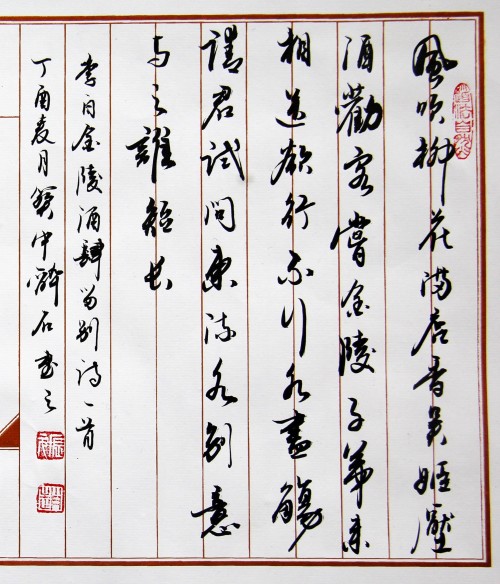 風吹柳花滿店香吳姬壓
酒勸客嘗金陵子弟來
相送欲行不行各盡觴
請君試問東流水別意
与之誰短長
李白金陵酒肆留別詩一首
丁酉麦月冀中醉石書之